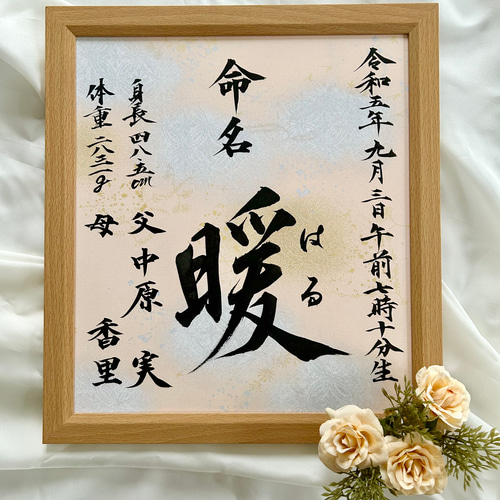 令和五年九月三日午前七時十分生
命名
暖
はる
身長四八・五cm
体重二八三二g
父中原実
母香里